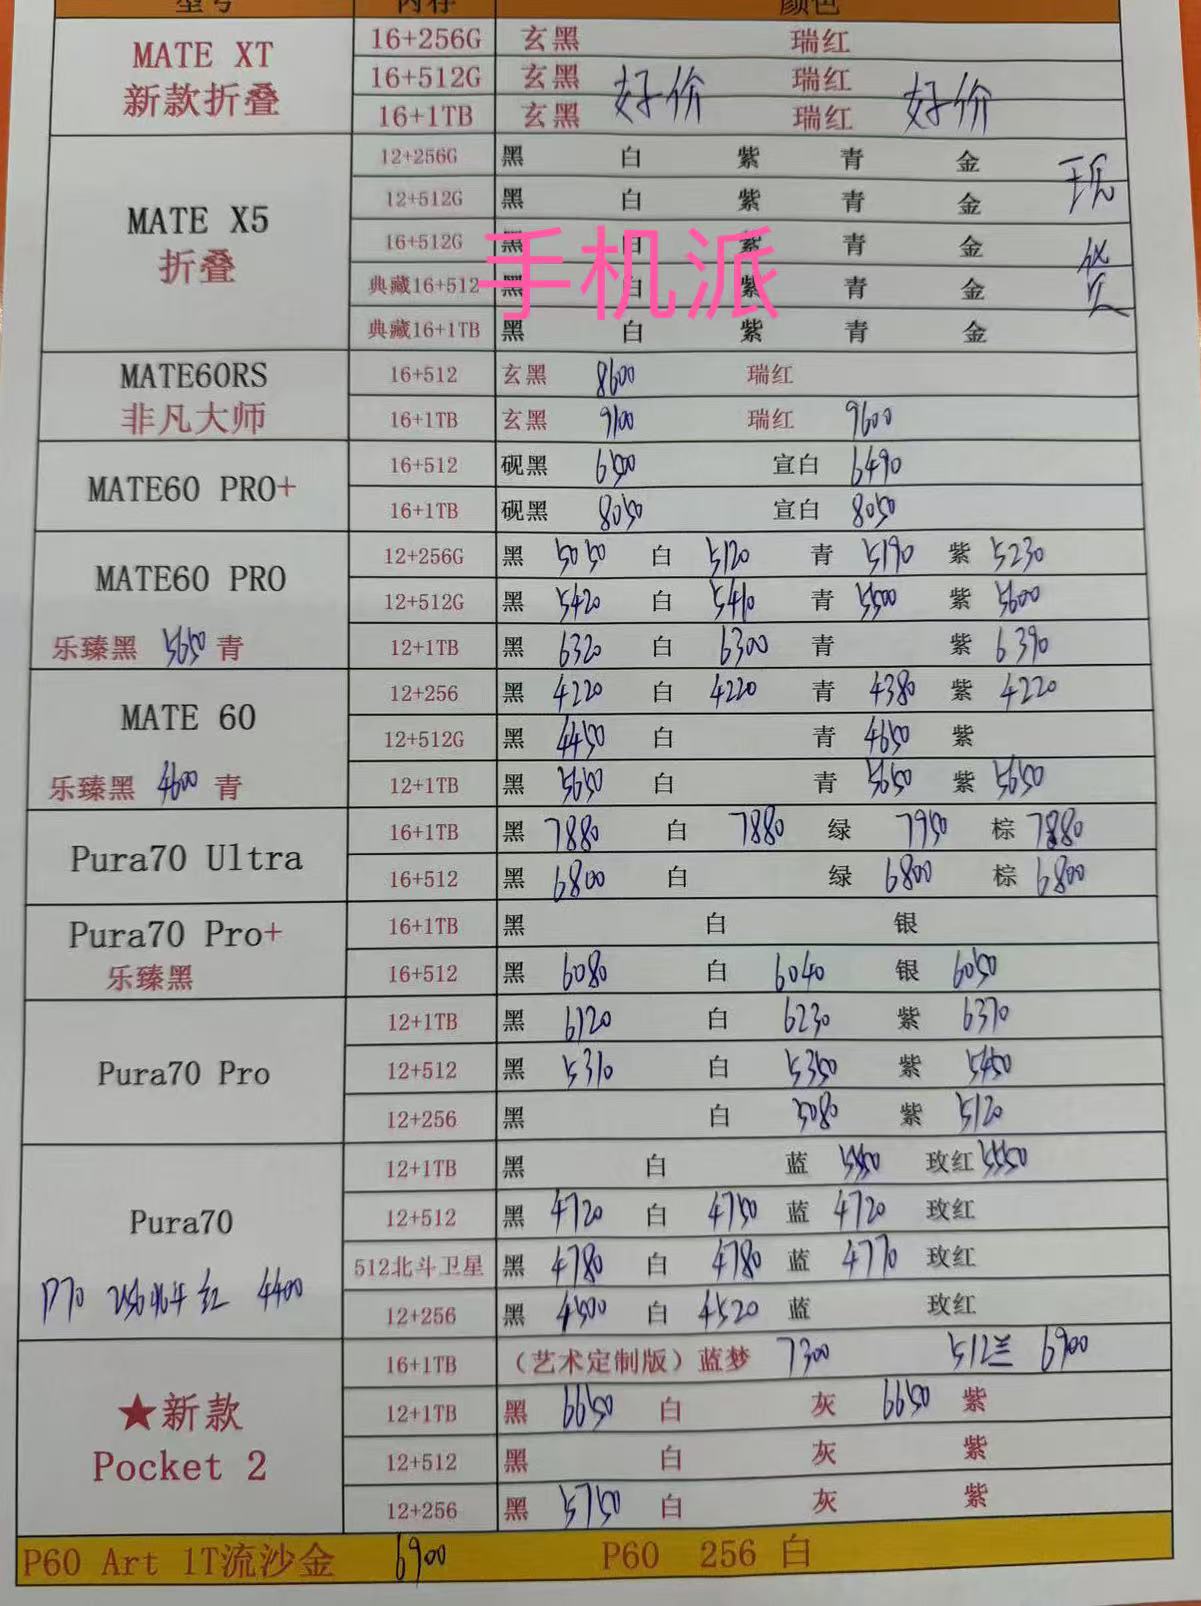 型号 内存 颜色
MATE XT 新款折叠
16+256G 玄黑 瑞红
16+512G 玄黑 好价 瑞红 好价
16+1TB 玄黑 瑞红
MATE X5 折叠
12+256G 黑 白 紫 青 金
12+512G 黑 白 紫 青 金 现
16+512G 黑 白 紫 青 金
典藏16+512 黑 白 紫 青 金
典藏16+1TB 黑 白 紫 青 金
手机派
MATE60RS 非凡大师
16+512 玄黑 8600 瑞红
16+1TB 玄黑 9100 瑞红 9600
MATE60 PRO+
16+512 砚黑 6500 宣白 6490
16+1TB 砚黑 8050 宣白 8050
MATE60 PRO
12+256G 黑 5050 白 5120 青 5190 紫 5230
12+512G 黑 5420 白 5410 青 5500 紫 5600
乐臻黑 5650 青
12+1TB 黑 6320 白 6300 青 紫 6390
MATE 60
12+256 黑 4220 白 4220 青 4380 紫 4220
12+512G 黑 4450 白 青 4650 紫
乐臻黑 4600 青
12+1TB 黑 5650 白 青 5650 紫 5650
Pura70 Ultra
16+1TB 黑 7880 白 7880 绿 7950 棕 7880
16+512 黑 6800 白 绿 6800 棕 6800
Pura70 Pro+
乐臻黑
16+1TB 黑 白 银
16+512 黑 6080 白 6040 银 6050
Pura70 Pro
12+1TB 黑 6120 白 6230 紫 6370
12+512 黑 5310 白 5350 紫 5450
12+256 黑 白 5080 紫 5120
Pura70
12+1TB 黑 白 蓝 5550 玫红 5550
12+512 黑 4720 白 4750 蓝 4720 玫红
512北斗卫星 黑 4780 白 4780 蓝 4770 玫红
P70 256北斗 红 4400
12+256 黑 4500 白 4520 蓝 玫红
★新款 Pocket 2
16+1TB （艺术定制版）蓝梦 7300 512兰 6900
12+1TB 黑 6650 白 灰 6650 紫
12+512 黑 白 灰 紫
12+256 黑 5750 白 灰 紫
P60 Art 1T流沙金 6900 P60 256 白